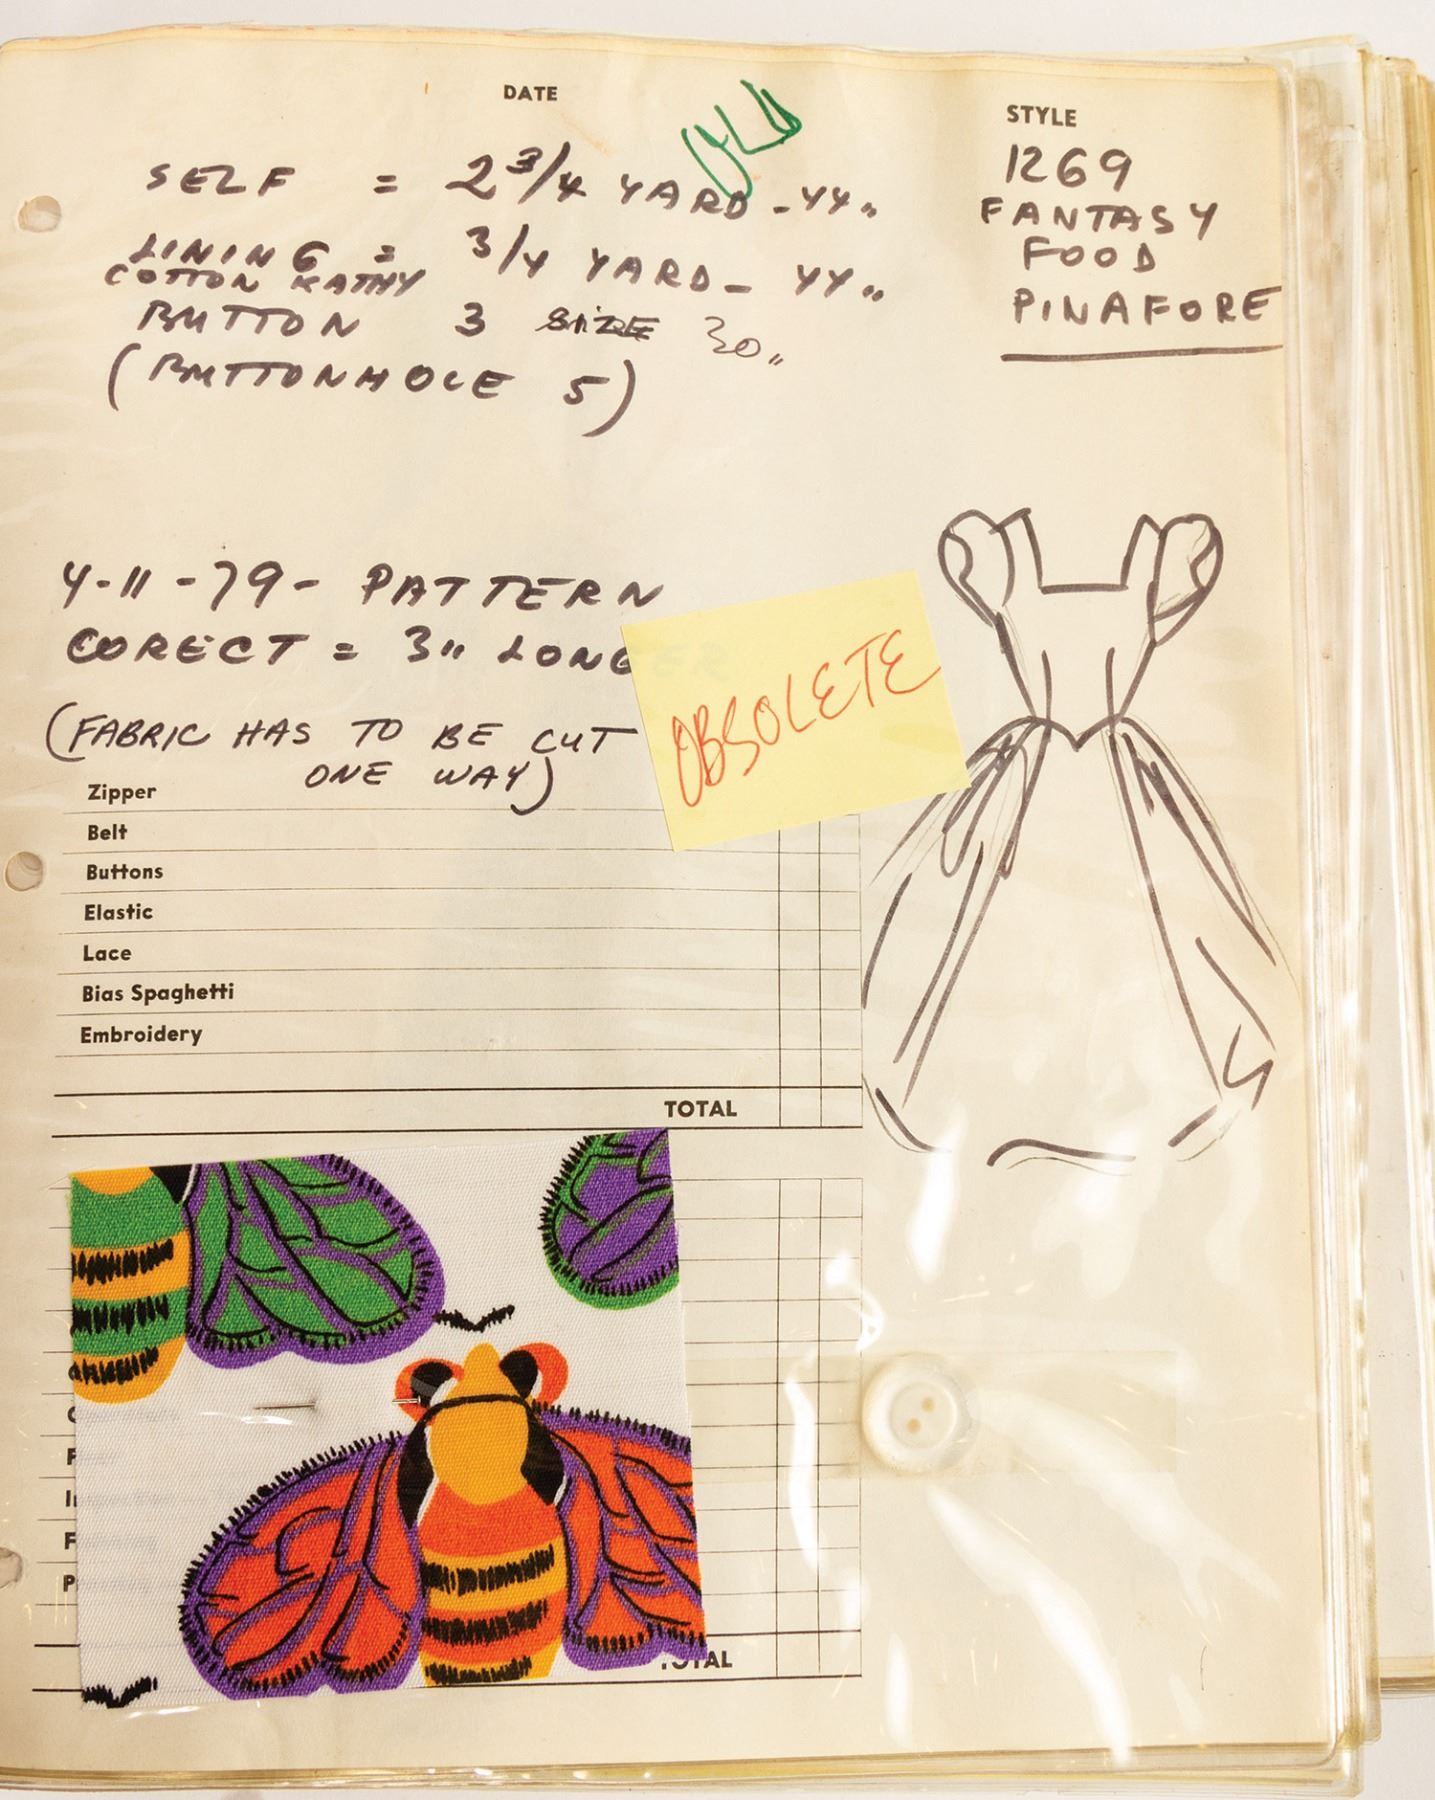 DATE
OLD
STYLE
1269
FANTASY
FOOD
PINAFORE
SELF = 2 3/4 YARD - 44"
LINING = 3/4 YARD - 44"
COTTON KATHY
BUTTON 3 SIZE 30"
(BUTTONHOLE 5)
4-11-79- PATTERN
CORECT = 3" LONGER
(FABRIC HAS TO BE CUT
ONE WAY)
OBSOLETE
Zipper
Belt
Buttons
Elastic
Lace
Bias Spaghetti
Embroidery
TOTAL
TOTAL